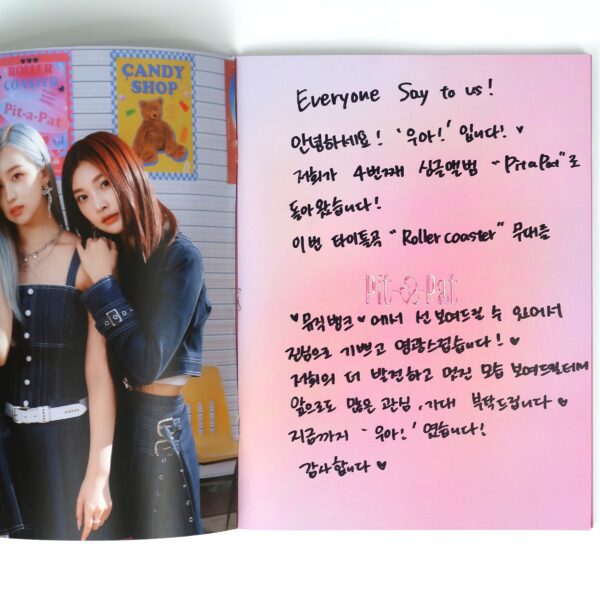 ROLLER
COASTER
Pit-a-Pat
CANDY
SHOP
Everyone Say to us!
안녕하세요! '우아!' 입니다! ♥
저희가 4번째 싱글앨범 "Pit a Pat"로
돌아왔습니다!
이번 타이틀곡 "Roller coaster" 무대를
Pit-a-Pat
♥뮤직뱅크♥에서 선보여드릴 수 있어서
진심으로 기쁘고 영광스럽습니다! ♥
저희의 더 발전하고 멋진 모습 보여드릴테니
앞으로도 많은 관심, 기대 부탁드립니다♥
지금까지 '우아!' 였습니다!
감사합니다♥